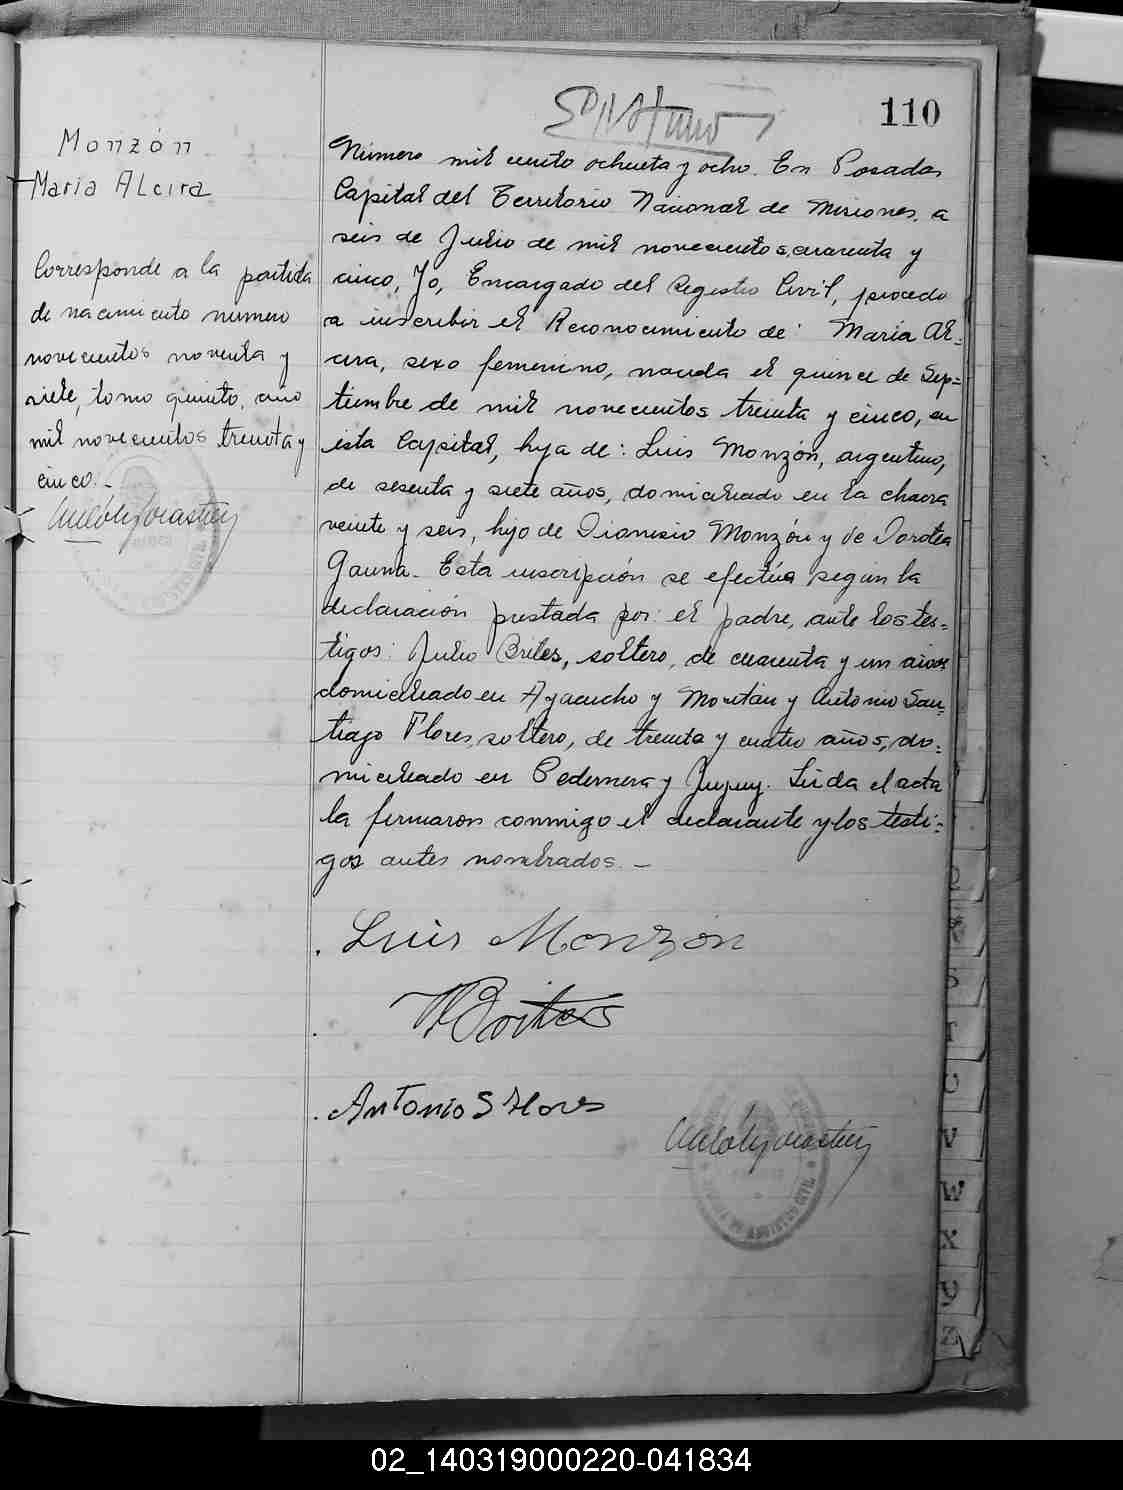 110
Monzón
Maria Alcira
Corresponde a la partida
de nacimiento número
novecientos noventa y
siete, tomo quinto, año
mil novecientos treinta y
cinco.-
Número mil ciento ochenta y ocho. En Posadas
Capital del Territorio Nacional de Misiones, a
seis de Julio de mil novecientos cuarenta y
cinco, Yo, Encargado del Registro Civil, procedo
a inscribir el Reconocimiento de: María Al=
cira, sexo femenino, nacida el quince de Sep=
tiembre de mil novecientos treinta y cinco, en
esta Capital, hija de: Luis Monzón, argentino,
de sesenta y siete años, domiciliado en la chacra
veinte y seis, hijo de Dionisio Monzón y de Dorotea
Gauna. Esta inscripción se efectúa según la
declaración prestada por: el padre, ante los tes=
tigos: Julio Brites, soltero, de cuarenta y un años
domiciliado en Ayacucho y Moritán y Antonio San=
tiago Flores, soltero, de treinta y cuatro años, do=
miciliado en Pedernera y Jujuy. Leída el acta
la firmaron conmigo el declarante y los testi=
gos antes nombrados.-
Luis Monzón
Brites
Antonio S Flores
REGISTRO CIVIL
S
T
U
V
W
X
Y
Z
02_140319000220-041834